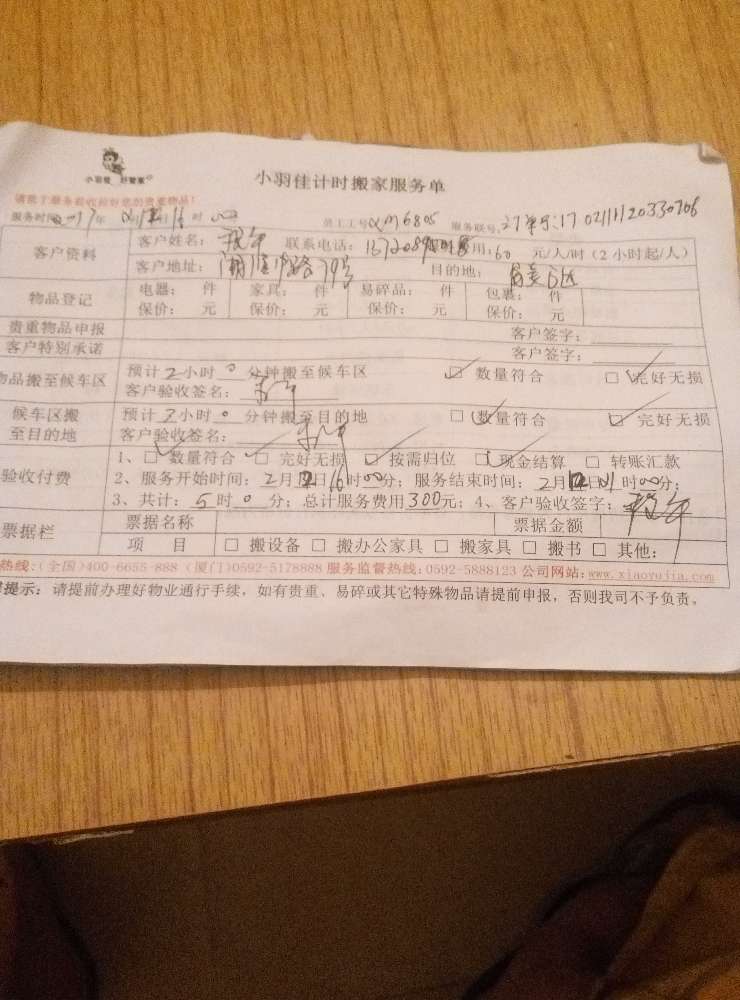 小羽佳 好管家
小羽佳计时搬家服务单
服务时间2017年 时 00 员工工号XM6805 服务联号:
客户资料 客户姓名: 联系电话: 用:60 元/人/时(2小时起/人)
客户地址: 79号 目的地:
物品登记 电器: 件 家具: 件 易碎品: 件 包裹: 件
保价: 元 保价: 元 保价: 元 保价: 元
贵重物品申报 客户签字:
客户特别承诺 客户签字:
物品搬至候车区 预计2小时0分钟搬至候车区 □ 数量符合 □ 完好无损
客户验收签名:
候车区搬 预计2小时0分钟搬至目的地 □ 数量符合 □ 完好无损
至目的地 客户验收签名:
1、□ 数量符合 □ 完好无损 □ 按需归位 □ 现金结算 □ 转账汇款
验收付费 2、服务开始时间:2月 日16时00分;服务结束时间:2月 日21时00分;
3、共计:5时0分;总计服务费用300元;4、客户验收签字:
票据栏 票据名称 票据金额
项 目 □ 搬设备 □ 搬办公家具 □ 搬家具 □ 搬书 □ 其他:
热线:(全国)400-6655-888 (厦门)0592-5178888 服务监督热线:0592-5888123 公司网站:www.xiaoyujia.com
提示:请提前办理好物业通行手续,如有贵重、易碎或其它特殊物品请提前申报,否则我司不予负责。